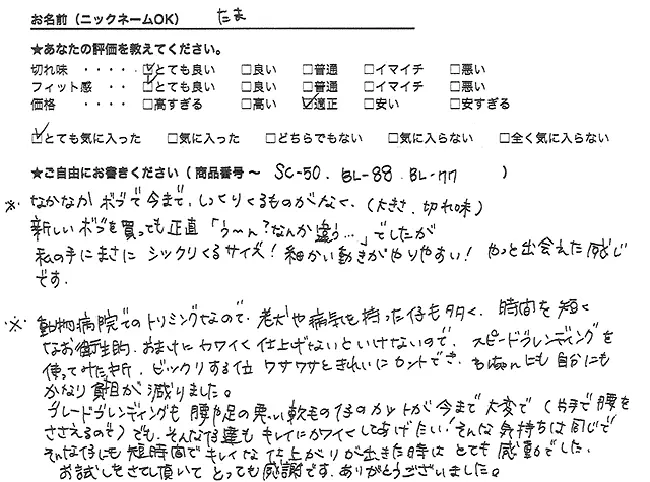 お名前（ニックネームOK） たま
★あなたの評価を教えてください。
切れ味 ・・・・・ ☑とても良い □良い □普通 □イマイチ □悪い
フィット感 ・・ ☑とても良い □良い □普通 □イマイチ □悪い
価格 ・・・・ □高すぎる □高い ☑適正 □安い □安すぎる
☑とても気に入った □気に入った □どちらでもない □気に入らない □全く気に入らない
★ご自由にお書きください（ 商品番号～ SC-50. BL-88. BL-77 ）
※ なかなか ボブで今まで、しっくりくるものがなく、（大きさ、切れ味）
新しいボブを買っても正直「う〜ん？なんか違う…」でしたが
私の手にまさに シックリくるサイズ！細かい動きがやりやすい！ やっと出会えた感じ
です.
※ 動物病院でのトリミングなので、老犬や病気を持った仔も多く、時間を短く
なお衛生的、おまけにカワイく仕上げないといけないので、スピードブレンディングを
使ってみた所、ビックリする位 ワサワサときれいにカットでき、もちろんにも自分にも
かなり負担が減りました。
ブレードブレンディングも腰や足の悪い軟毛の仔のカットが今まで大変で（片手で腰を
ささえるので）でも、そんな仔達もキレイにカワイくしてあげたい！そんな気持ちは同じで
そんな仔にも短時間でキレイな仕上がりが出きた時は とても感動でした.
お試しをさせて頂いて とっても感謝です. ありがとうございました。